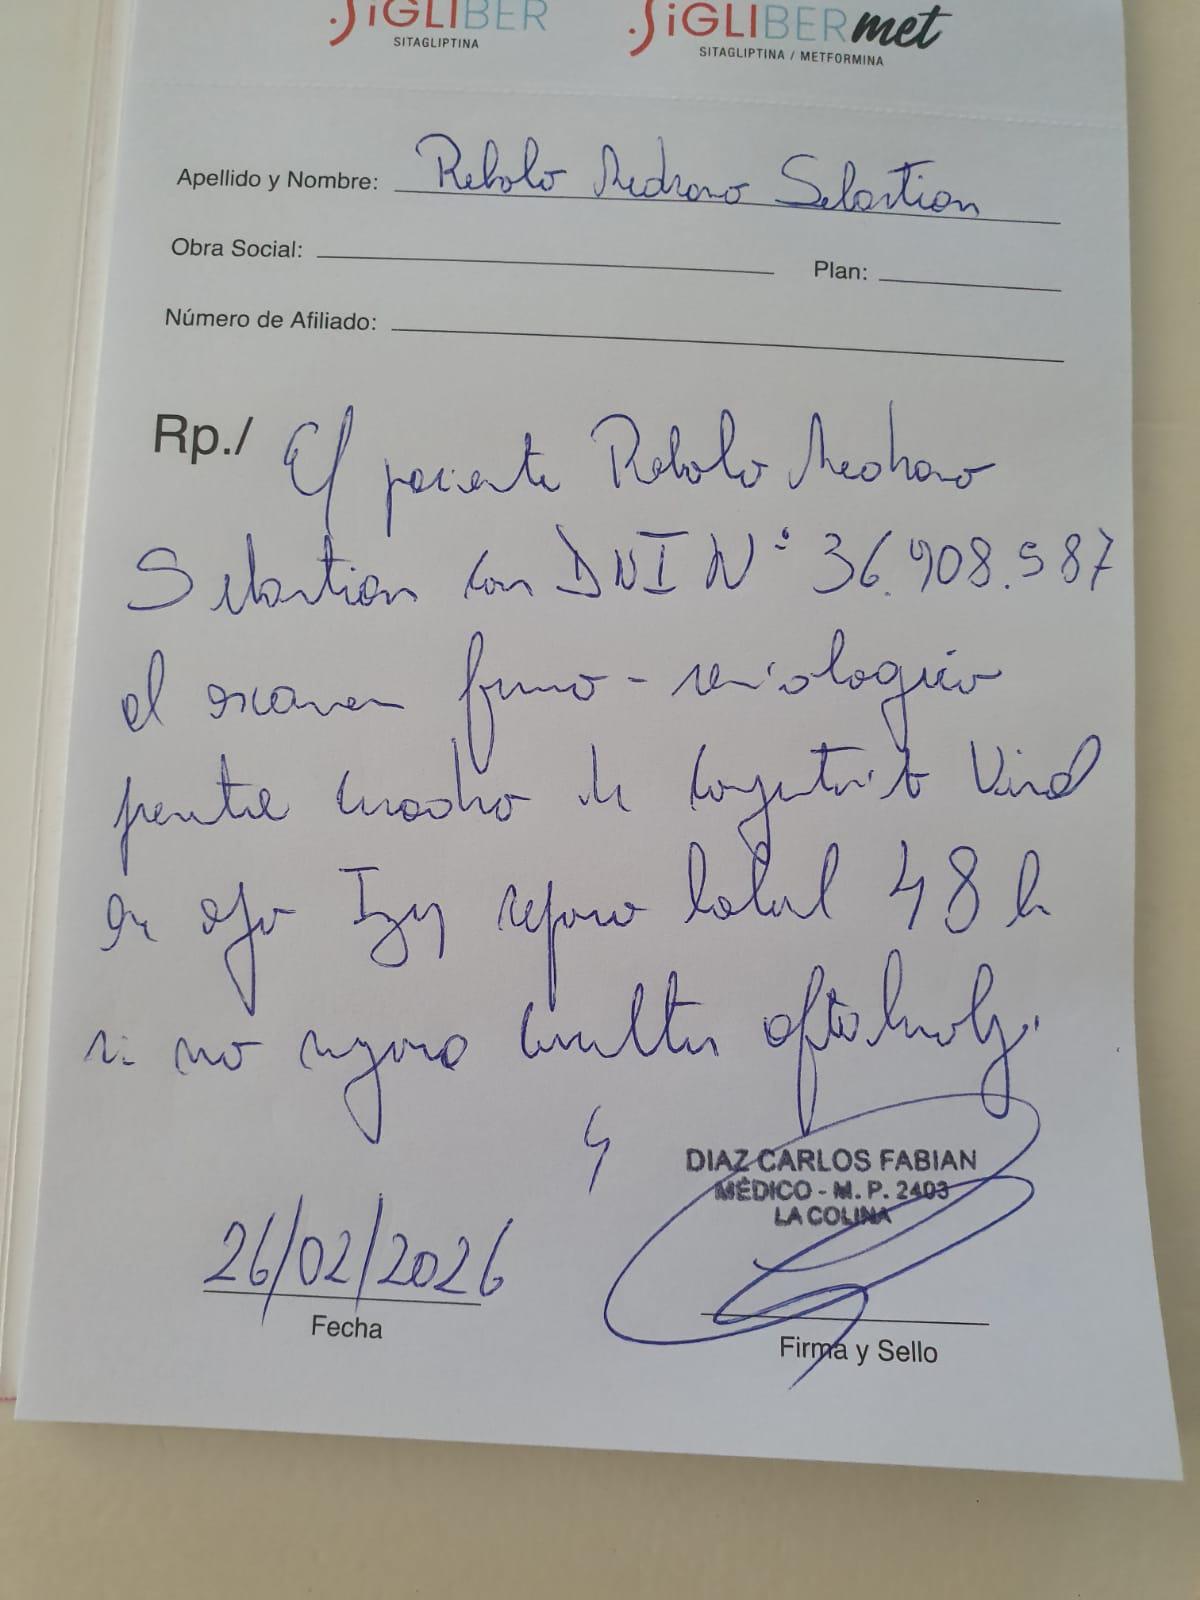 SiGLIBER SiGLIBERmet
SITAGLIPTINA SITAGLIPTINA / METFORMINA
Apellido y Nombre: Rebolo Medrano Sebastian
Obra Social: Plan:
Número de Afiliado:
Rp./ El paciente Rebolo Medrano
Sebastian con DNI N° 36.908.587
al examen fisico - semiologico
cuadro de conjuntivitis Viral
en ojo Izq reposo laboral 48 h
si no mejora consultar oftalmolg.
DIAZ CARLOS FABIAN
MÉDICO - M. P. 2403
LA COLINA
26/02/2026
Fecha
Firma y Sello